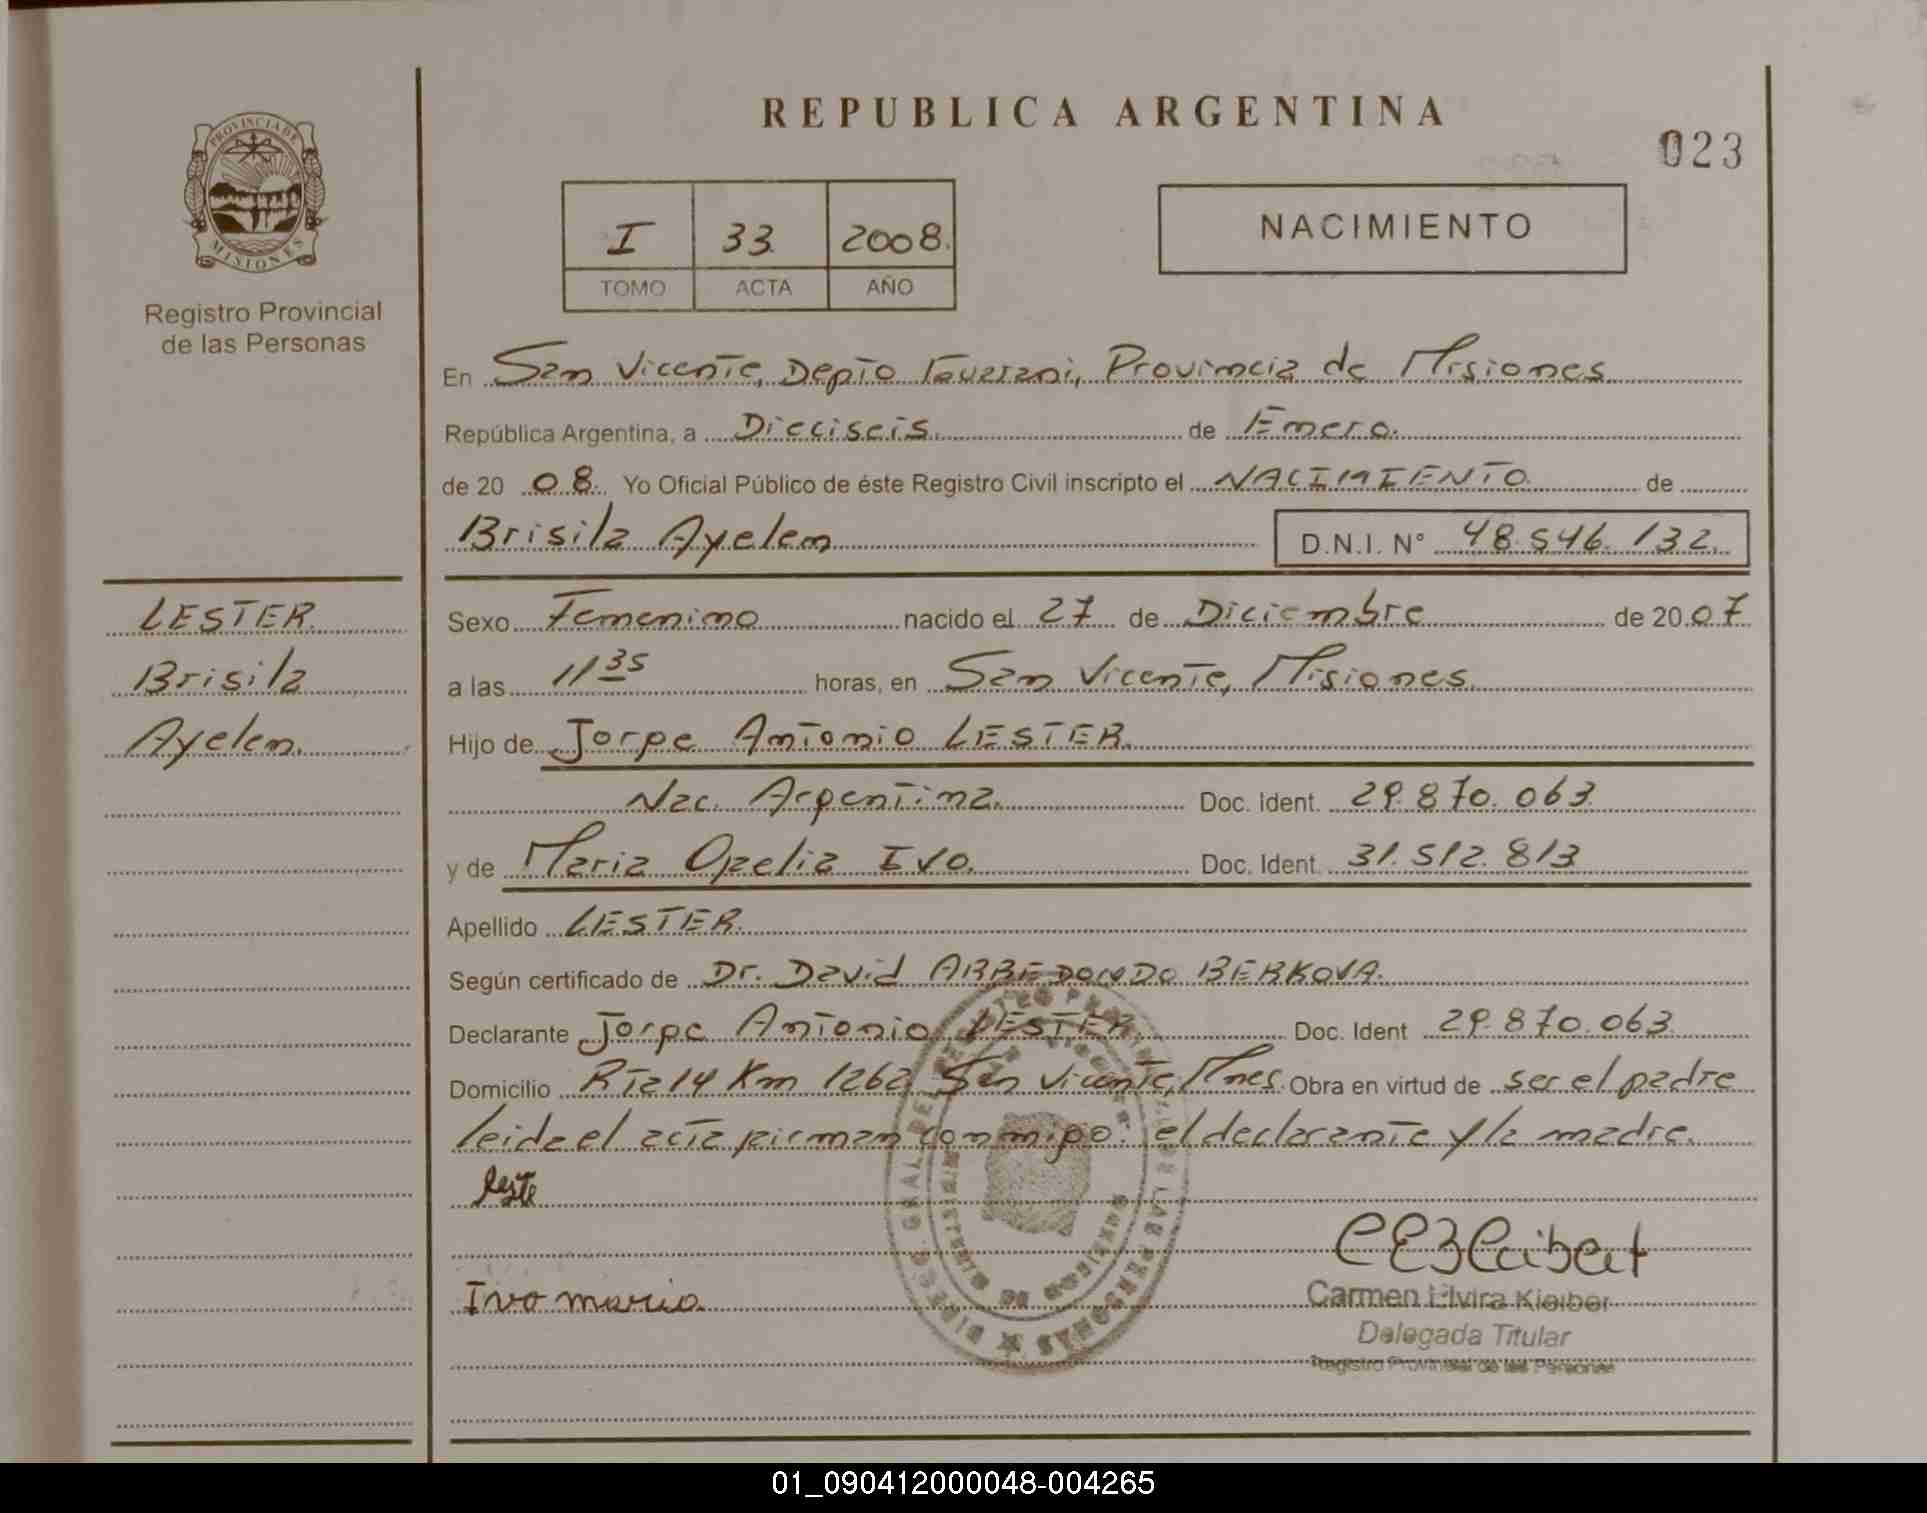 REPUBLICA ARGENTINA
023
PROVINCIA DE
MISIONES
Registro Provincial
de las Personas
I 33 2008.
TOMO ACTA AÑO
NACIMIENTO
En San Vicente, Depto Guarani, Provincia de Misiones
República Argentina, a Dieciseis. de Enero.
de 20 08. Yo Oficial Público de éste Registro Civil inscripto el NACIMIENTO de
Brisila Ayelen D.N.I. N° 48.546.132.
LESTER.
Brisila
Ayelen.
Sexo Femenino nacido el 27 de Diciembre de 20 07
a las 11 35 horas, en San Vicente, Misiones.
Hijo de Jorge Antonio LESTER.
Nac. Argentina. Doc. Ident. 29.870.063
y de Maria Ofelia IVO. Doc. Ident. 31.512.813
Apellido LESTER.
Según certificado de Dr. David ARREDONDO BERKOVA.
Declarante Jorge Antonio LESTER. Doc. Ident 29.870.063
Domicilio Rta 14 Km 1262 San Vicente, Mnes. Obra en virtud de ser el padre
leida el acta firman conmigo: el declarante y la madre.
Leste
Ivo maria
Carmen Elvira Kleiber
Delegada Titular
Registro Provincial de las Personas
01_090412000048-004265